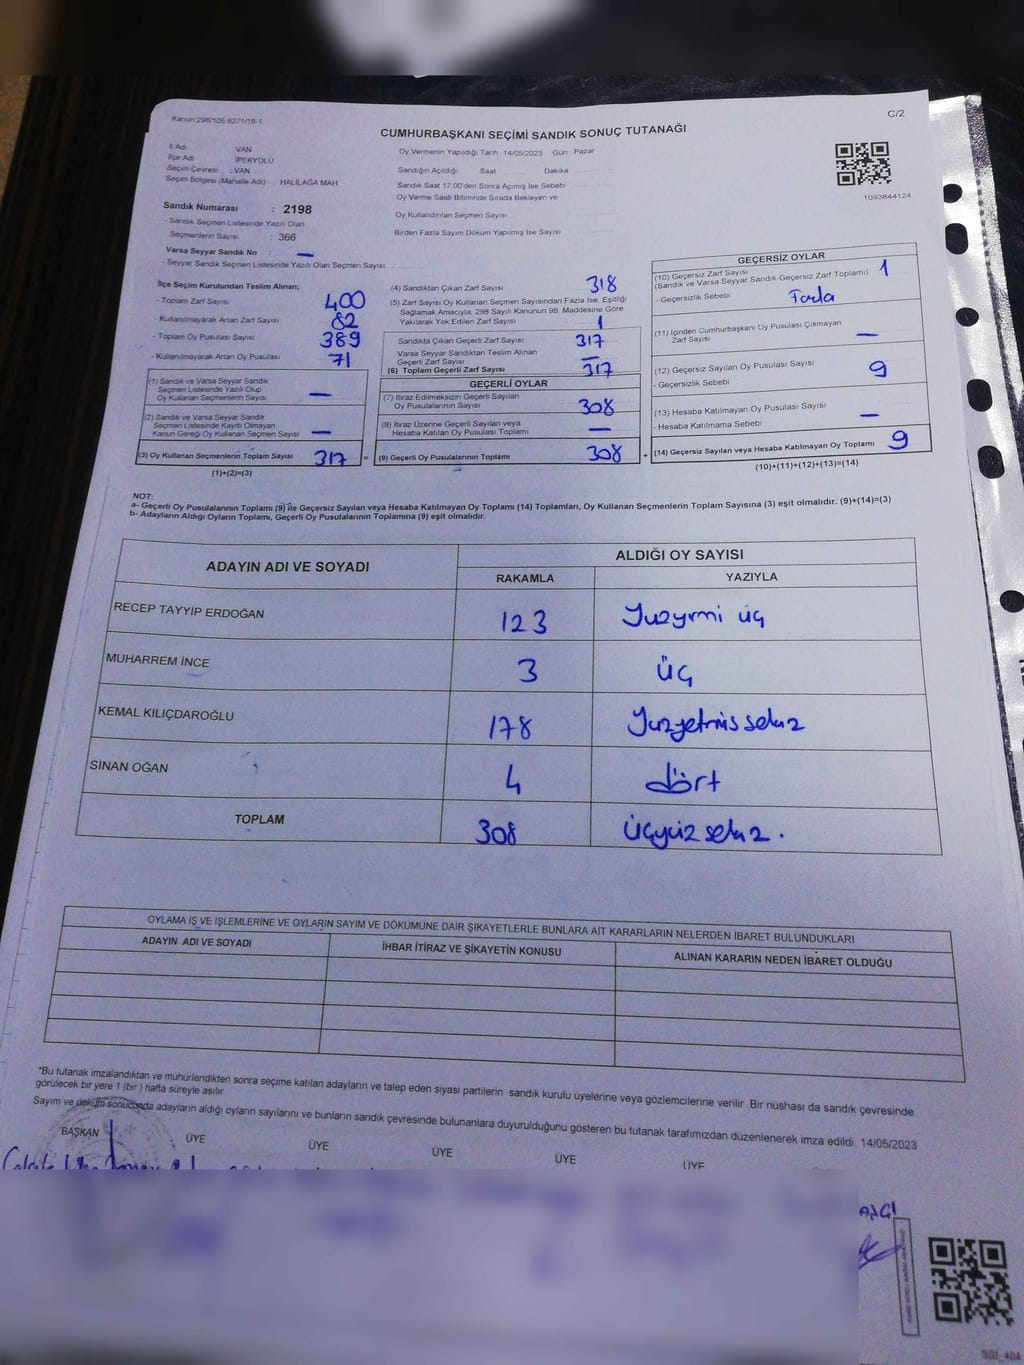 Kanun 298/105 6271/18-1
C/2
CUMHURBAŞKANI SEÇİMİ SANDIK SONUÇ TUTANAĞI
İl Adı VAN
İlçe Adı İPEKYOLU
Seçim Çevresi : VAN
Seçim Bölgesi (Mahalle Adı) : HALİLAĞA MAH
Sandık Numarası : 2198
- Sandık Seçmen Listesinde Yazılı Olan
Seçmenlerin Sayısı : 366
Varsa Seyyar Sandık No : —
- Seyyar Sandık Seçmen Listesinde Yazılı Olan Seçmen Sayısı
Oy Vermenin Yapıldığı Tarih : 14/05/2023 Gün : Pazar
Sandığın Açıldığı Saat Dakika
Sandık Saat 17.00'den Sonra Açılmış İse Sebebi
Oy Verme Saati Bitiminde Sırada Bekleyen ve
Oy Kullandırılan Seçmen Sayısı
Birden Fazla Sayım Döküm Yapılmış İse Sayısı
1093844124
İlçe Seçim Kurulundan Teslim Alınan;
- Toplam Zarf Sayısı 400
- Kullanılmayarak Artan Zarf Sayısı 82
- Toplam Oy Pusulası Sayısı 389
- Kullanılmayarak Artan Oy Pusulası 71
(1) Sandık ve Varsa Seyyar Sandık
Seçmen Listesinde Yazılı Olup
Oy Kullanan Seçmenlerin Sayısı —
(2) Sandık ve Varsa Seyyar Sandık
Seçmen Listesinde Kayıtlı Olmayan
Kanun Gereği Oy Kullanan Seçmen Sayısı —
(3) Oy Kullanan Seçmenlerin Toplam Sayısı 317 =
(1)+(2)=(3)
(4) Sandıktan Çıkan Zarf Sayısı 318
(5) Zarf Sayısı Oy Kullanan Seçmen Sayısından Fazla İse, Eşitliği
Sağlamak Amacıyla; 298 Sayılı Kanunun 98. Maddesine Göre
Yakılarak Yok Edilen Zarf Sayısı 1
Sandıkta Çıkan Geçerli Zarf Sayısı 317
Varsa Seyyar Sandıktan Teslim Alınan
Geçerli Zarf Sayısı —
(6) Toplam Geçerli Zarf Sayısı 317
GEÇERLİ OYLAR
(7) İtiraz Edilmeksizin Geçerli Sayılan
Oy Pusulalarının Sayısı 308
(8) İtiraz Üzerine Geçerli Sayılan veya
Hesaba Katılan Oy Pusulası Toplamı —
(9) Geçerli Oy Pusulalarının Toplamı 308 +
GEÇERSİZ OYLAR
(10) Geçersiz Zarf Sayısı 1
(Sandık ve Varsa Seyyar Sandık Geçersiz Zarf Toplamı)
- Geçersizlik Sebebi Fazla
(11) İçinden Cumhurbaşkanı Oy Pusulası Çıkmayan
Zarf Sayısı —
(12) Geçersiz Sayılan Oy Pusulası Sayısı 9
- Geçersizlik Sebebi
(13) Hesaba Katılmayan Oy Pusulası Sayısı —
- Hesaba Katılmama Sebebi
(14) Geçersiz Sayılan veya Hesaba Katılmayan Oy Toplamı 9
(10)+(11)+(12)+(13)=(14)
NOT:
a- Geçerli Oy Pusulalarının Toplamı (9) ile Geçersiz Sayılan veya Hesaba Katılmayan Oy Toplamı (14) Toplamları, Oy Kullanan Seçmenlerin Toplam Sayısına (3) eşit olmalıdır. (9)+(14)=(3)
b- Adayların Aldığı Oyların Toplamı, Geçerli Oy Pusulalarının Toplamına (9) eşit olmalıdır.
ADAYIN ADI VE SOYADI ALDIĞI OY SAYISI
RAKAMLA YAZIYLA
RECEP TAYYİP ERDOĞAN 123 Yuzyrmi üç
MUHARREM İNCE 3 üç
KEMAL KILIÇDAROĞLU 178 Yuzyetmis sekız
SİNAN OĞAN 4 dört
TOPLAM 308 üçyüz sekız.
OYLAMA İŞ VE İŞLEMLERİNE VE OYLARIN SAYIM VE DÖKÜMÜNE DAİR ŞİKAYETLERLE BUNLARA AİT KARARLARIN NELERDEN İBARET BULUNDUKLARI
ADAYIN ADI VE SOYADI İHBAR İTİRAZ VE ŞİKAYETİN KONUSU ALINAN KARARIN NEDEN İBARET OLDUĞU
*Bu tutanak imzalandıktan ve mühürlendikten sonra seçime katılan adayların ve talep eden siyasi partilerin sandık kurulu üyelerine veya gözlemcilerine verilir. Bir nüshası da sandık çevresinde
görülecek bir yere 1 (bir) hafta süreyle asılır
Sayım ve döküm sonucunda adayların aldığı oyların sayılarını ve bunların sandık çevresinde bulunanlara duyurulduğunu gösteren bu tutanak tarafımızdan düzenlenerek imza edildi. 14/05/2023
BAŞKAN ÜYE ÜYE ÜYE ÜYE ÜYE